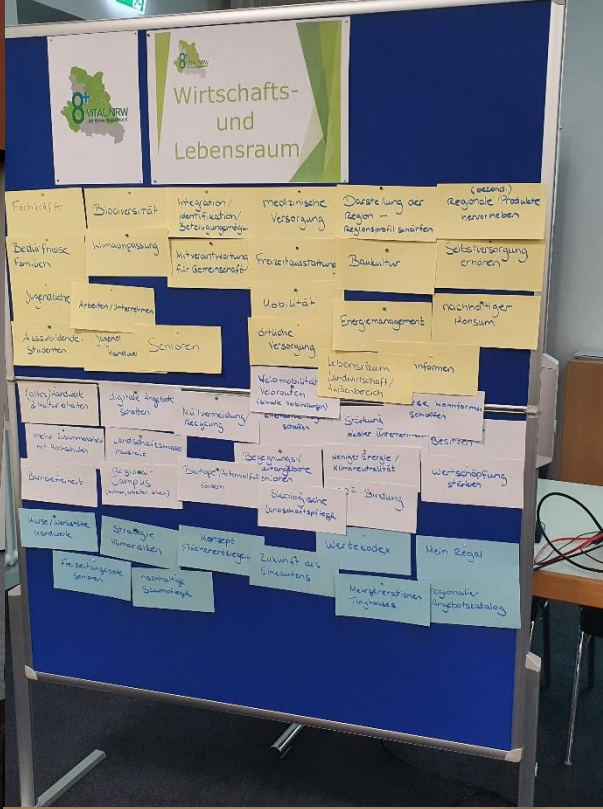 8+
VITAL.NRW
8+
VITAL.NRW
Wirtschafts-
und
Lebensraum
Fachkräfte
Biodiversität
Integration/
Identifikation/
medizinische
Versorgung
Darstellung der
Region –
Regionsprofil schärfen
(besond.)
Regionale Produkte
hervorheben
Bedürfnisse
Familien
Klimaanpassung
Mitverantwortung
für Gemeinschaft
Freizeitausstattung
Baukultur
Selbstversorgung
erhöhen
Jugendliche
Arbeiten/Unternehmen
Mobilität
Energiemanagement
nachhaltiger
Konsum
Auszubildende
Studenten
Jugend
Handwerk
Senioren
örtliche
Versorgung
Lebensraum
Landwirtschaft/
Außenbereich
Wohnformen
(altes) Handwerk
& Kultur erhalten
digitale Angebote
schaffen
Müllvermeidung/
Recycling
Velomobilität
Velorouten
schaffen
Stärkung
Wohnformen
schaffen
Besitzen
mehr Zusammenarbeit
mit Hochschulen
Begegnungs-/
weniger Energie/
Klimaneutralität
Wertschöpfung
stärken
Barrierefreiheit
Regional-
Campus
Biotope/Artenvielfalt
fördern
Senioren
ökologische
Landschaftspflege
Bindung
Handwerk
Strategie
Klimarisiken
Konzept
Zukunft des
Einkaufens
Wertekodex
Mein Regal
Freizeitangebote
Senioren
nachhaltige
Mehrgenerationen
Tinyhouses
regionaler
Angebotskatalog